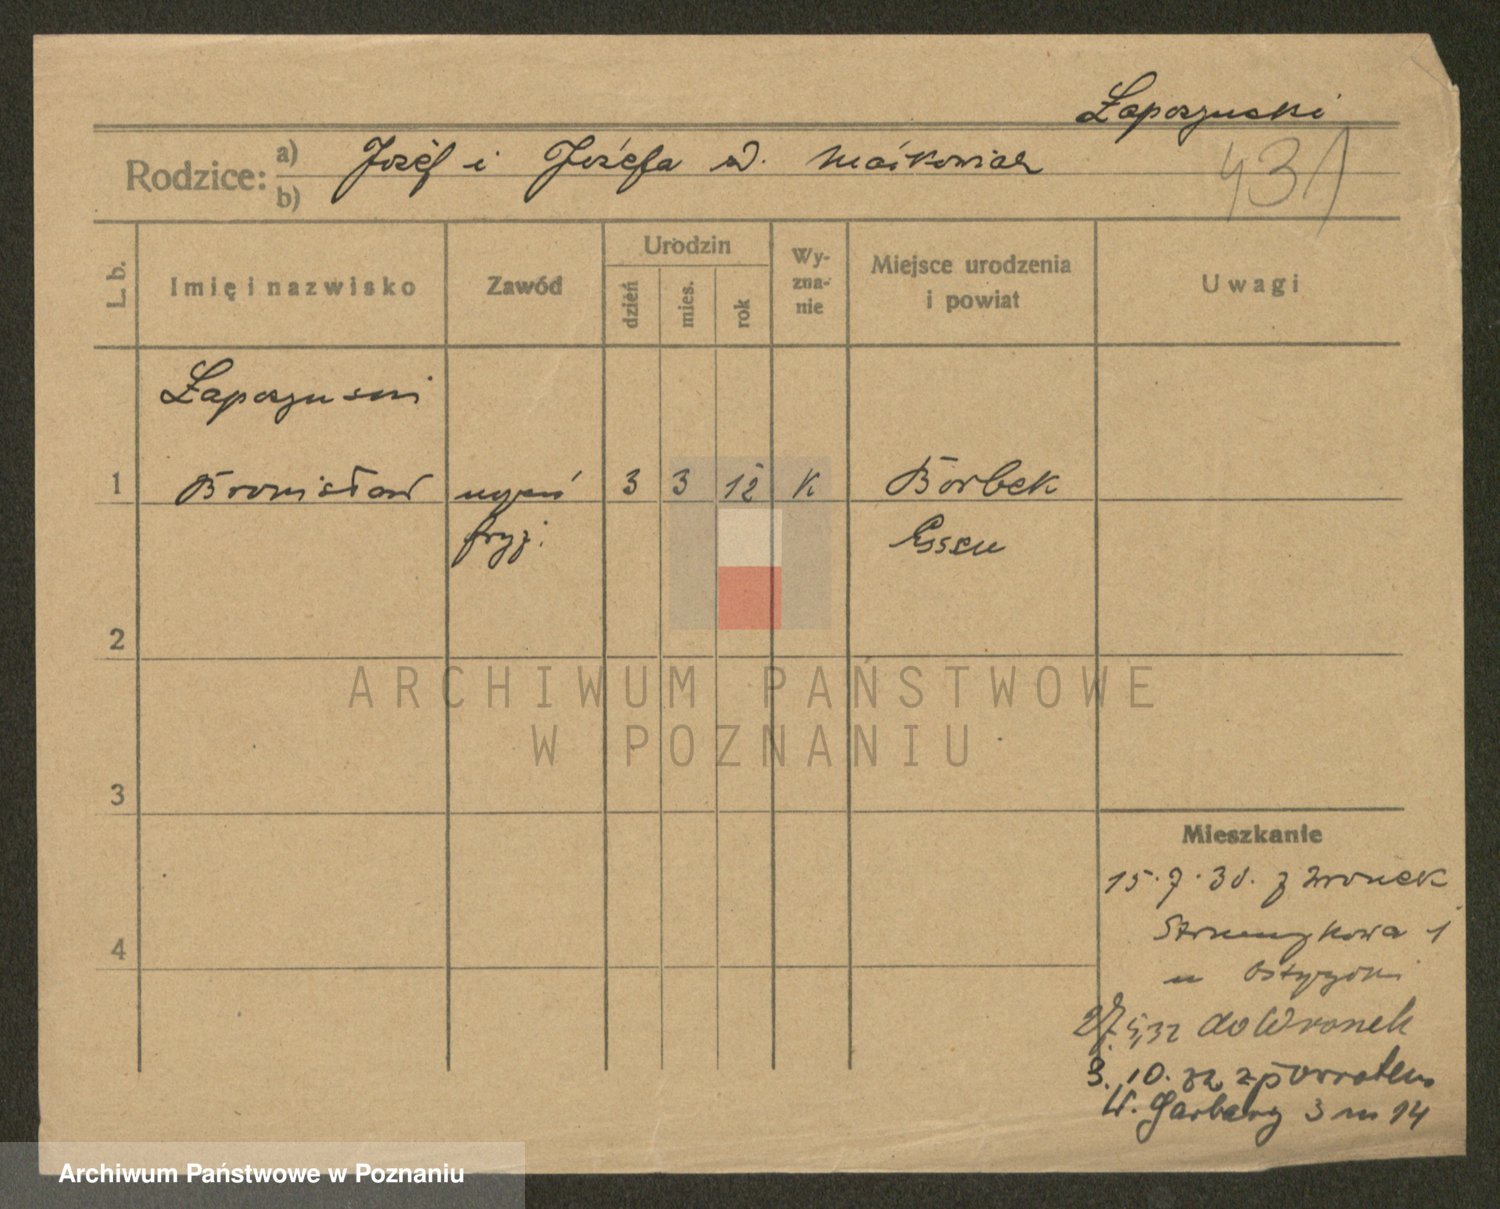 Łaposzuski
431
Rodzice: a) Józef i Józefa z d. Maćkowiak
b)
L. b. Imię i nazwisko Zawód Urodzin dzień mies. rok Wyznanie Miejsce urodzenia i powiat Uwagi
1 Bronisław uczeń 3 3 12 K Borbek
fryz. Essen
2
ARCHIWUM PAŃSTWOWE
W POZNANIU
3
Mieszkanie
15.7.30. z Wronek
1
4
u
27.5.32 do Wronek
3.10.32 z powrotem
W. Garbary 3 m 14
Archiwum Państwowe w Poznaniu